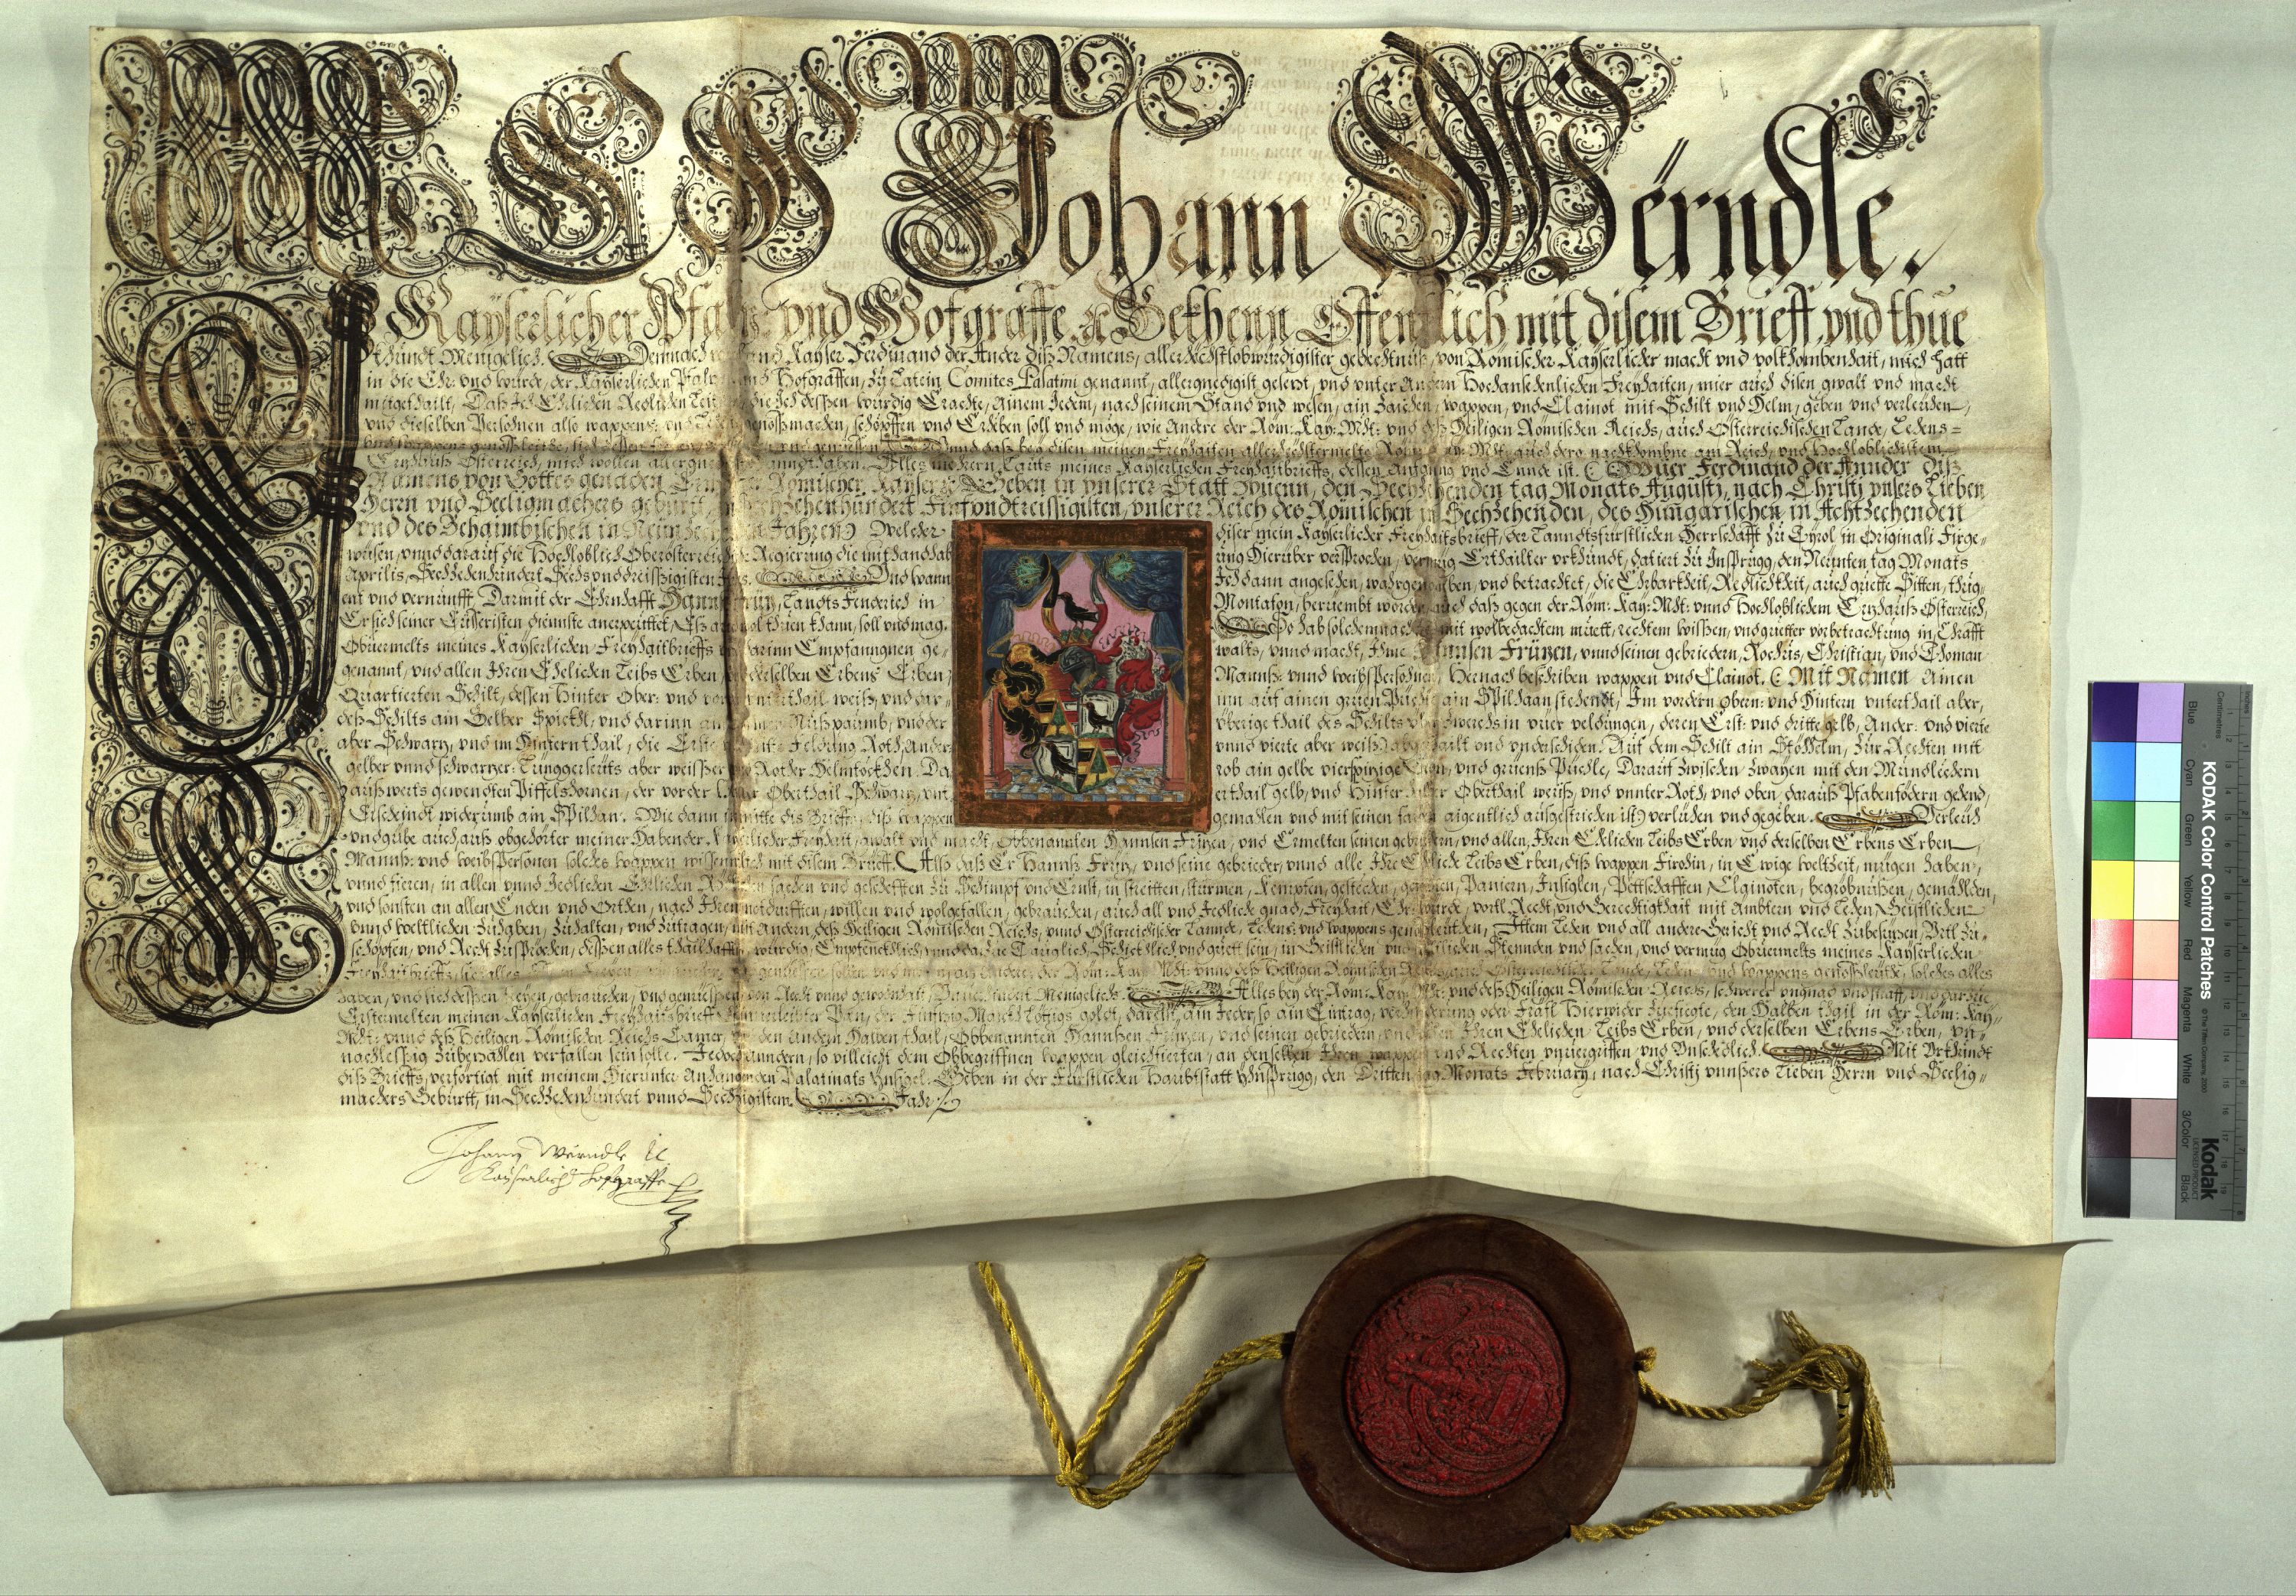 Ich Johann Wërndle.
Kaÿserlicher Pfaltz vnd Hofgraffe ꝛc Bekhenn Offentlich mit disem Brieff, vnd thue
khundt Menigelich. Demnach weilland Kaÿser Ferdinand der Ander diß Namens, allerhöchstlobwürdigister gedechtnuß, von Römischer Kaÿserlicher macht vnd volkhombenhait, mich hatt
in die Ehr: vnd würde, der Kaÿserlichen Pfaltz vnd Hofgraffen, zu Latein Comites Palatini genannt, allergnedigist gesetzt, vnd vnter Andern Hochansechenlichen Freÿhaiten, mier auch disen gwalt vnd macht
mitgethailt, Daß Ich Ehrlichen Redlichen Leiten die Ich dessen würdig Erachte, Ainem Jedem, nach seinem Stand vnd wesen, ain Zaichen, wappen, vnd Clainot mit Schilt vnd Helm, geben vnd verleichen,
vnd dieselben Persohnen also wappens: vnd Lehens genoßmachen, schöpffen vnd Erheben soll vnd möge, wie Andere der Röm: Kaÿ: Mdt: vnd deß Heiligen Römischen Reichs, auch Österreichischen Lande, Lehens=
Ertzhauß Österreich, mich wöllen allergnedigist hanndthaben. Alles mehrern Lauts meines Kaÿserlichen Freÿhaitbrieffs, dessen Anfanng vnd Ennde ist. Wier Ferdinand der Annder diß
Namens von Gottes genaden Erwelter Römischer Kaÿser ꝛc Geben in vnserer Statt Wienn, den Sechzehenden tag Monats Augustj, nach Christj vnsers Lieben
Herrn vnd Seeligmachers geburt, im Sechzehenhundert Finfvndtreissigisten, vnserer Reich des Römischen in Sechzehenden, des Hungarischen in Achtzechenden
vnd des Behaimbischen in Neunzechenden Jahren) Welcher diser mein Kaÿserlicher Freÿhaitsbrieff, der Lanndtsfürstlichen Herrschafft zu Tÿrol in Originali Firge=
wisen, vnnd darauf die Hochloblich Oberösterreichische Regierung die mithandhabung hierüber versprochen, vermüg Erthailter vrkhundt, datiert zu Insprugg, den Neunten tag Monats
Aprilis, Sechzechenhundert Sechsvnddreissigisten Jars. Vnd wann Ich dann angesechen, wahrgenomben, vnd betrachtet, die Ehrbarkheit, Redlichkheit, auch guette Sitten, thug=
ent vnd vernunfft, Darmit der Ehrnhafft Hannß Früz, Landts Fenderich in Montafon, berüembt worden, auch daß gegen der Röm: Kaÿ: Mdt: vnnd Hochloblichem Ertzhauß Österreich,
Er sich seiner Eusseristen diennste anerpeüttet, Eß auch wol thuen khann, soll vnd mag. So hab solchemnach Ich mit wolbedachtem muett, rechtem wissen, vnd guetter vorbetrachtung in Chrafft
Obuermelts meines Kaÿserlichen Freÿhaitbrieffs vnd darinn Empfanngnen gewalts, vnnd macht, Ihme Hannsen Früzen, vnnd seinen gebriedern, Rochus, Christian, vnd Thoman
genannt, vnd allen Ihren Ehelichen Leibs Erben vnd derselben Erbens Erben, Mannß: vnnd weibspersohnen, Hernach beschriben wappen vnd Clainot. Mit Namen Ainen
Quartierten Schilt, dessen Hinter Ober: vnd vorder vnterthail weiß, vnd darinn auf ainen grüen Püchl ain Spilhaan stehendt, Im vordern obern: vnd Hintern vnterthail aber,
deß Schilts ain Gelber Spickhl, vnd darinn ain grüner Nußpaumb, vnd der vberige thail des Schilts vberzwerchs in vier veldungen, deren Erst: vnd dritte gelb, Ander: vnd vierte
aber Schwarz, vnd im Hintern thail, die Erst: vnd dritte Feldung Roth, Ander: vnnd vierte aber weiß abgethailt vnd vnderschiden. Auf dem Schilt ain Stöchhelm, zur Rechten mit
gelber vnnd schwarzer: Linggerseüts aber weisser vnd Rother Helmdöckhen. Darob ain gelbe vierspizige Cron, vnd grüenß Püchle, Darauf zwischen zwayen mit den Mundlöchern
außwerts gewendten Piffelshornen, der vorder Ober Oberthail Schwarz, vnterthail gelb, vnd Hinter aber Oberthail weiß, vnd vnnter Roth, vnd oben darauß Pfabenfedern gehend,
Erscheindt widerumb ain Spilhan. Wie dann in mitte diß Brieffs, diß wappen gemahlen vnd mit seinen farben aigentlich außgestrichen ist) verlichen vnd gegeben. Verleich
vnd gibe auch auß obgehörter meiner habender Kaÿserlicher Freÿhait, gwalt vnd macht, Obbenannten Hannsen Frizen, vnd Ermelten seinen gebriedern, vnd allen Ihren Ehelichen Leibs Erben vnd derselben Erbens Erben,
Mannß: vnd weibspersonen solches wappen wissentlich mit disem Brieff. Alß daß Er Hannß Friz, vnd seine gebrieder, vnnd alle Ihre Eheliche Leibs Erben, diß wappen Firohin, in Ewige weltzeit, mügen haben,
vnnd fieren, in allen vnnd Jedlichen Ehrlichen Redlichen sachen vnd geschefften zu Schimpf vnd Ernst, in streitten, stürmen, Kempfen, gestechen, gefechten, Paniern, Insiglen, Pettschafften, Clainoten, begröbnussen, gemählden,
vnd sonsten an allen Enden vnd Orthen, nach Ihren notdurfften, willen vnd wolgefallen, gebrauchen, auch all vnd Jedliche gnad, Freÿhait, Ehr, würde, vortl, Recht, vnd Gerechtigkhait mit Ambtern vnd Lehen, Geistlichen
vnnd weltlichen zuhaben, zuhalten, vnd zutragen, mit Andern, deß Heiligen Römischen Reichs, vnnd Österreichischen Lannde, Lehens: vnd wappens genoßleüthen, Ittem Lehen vnd all andere Gericht vnd Recht zubesitzen, Vrtl zu=
schöpfen, vnd Recht zusprechen, dessen alles thailhafftig, würdig, Empfenckhlich, vnnd darzue Tauglich, Schickhlich vnd guett sein, in Geistlichen vnd weltlichen Stennden vnd sachen, vnd vermüg Obuermelts meines Kaÿserlichen
haben, vnd sich dessen freÿen, gebrauchen, vnd geniessen, von Recht vnnd gewohnhait, Vnuerhindert Menigelichs. Alles bey der Röm: Kay: Mdt: vnd deß Heiligen Römischen Reichs, schwerer vngnad vnd straff, vnd darzue
Erstermelten meinen Kaÿserlichen Freÿhaitsbrieff Einuerleibter Pän, der Finfzig Marckh lötigs goldt, daruon ain Jeder, so ain Eintrag, verhinderung oder Fräfl hierwider zuefiegte, den Halben thail in der Röm: Kaÿ=
Mdt: vnnd deß Heiligen Römischen Reichs Camer, vnd den andern Halben thail, Obbenannten Hannsen Frizen, vnd seinen gebriedern, vnd allen Ihren Ehelichen Leibs Erben, vnd derselben Erbens Erben, vn=
nachlessig zubezahlen verfallen sein solle. Jedoch andern, so villeicht dem Obbegriffnen wappen gleichfierten, an denselben Ihren wappen vnd Rechten vnuergriffen, vnd Vnschedlich. Mit Vrkhundt
diß Brieffs, verförtigt mit meinem Hierunter Anhangenden Palatinats Ynsigel. Geben in der Fürstlichen Haubtstatt Yhnsprugg, den Dritten tag Monats Februarÿ, nach Christj vnnsers Lieben Herrn vnd Seelig=
machers Geburtt, in Sechzechenhundert vnnd Sechzigistem Jahr
Johann Wërndle ꝛc
Kaÿserlich: Hofgraffe
KODAK Color Control Patches
© The Tiffen Company, 2000
Kodak
LICENSED PRODUCT
Blue Cyan Green Yellow Red Magenta White 3/Color Black
Centimetres